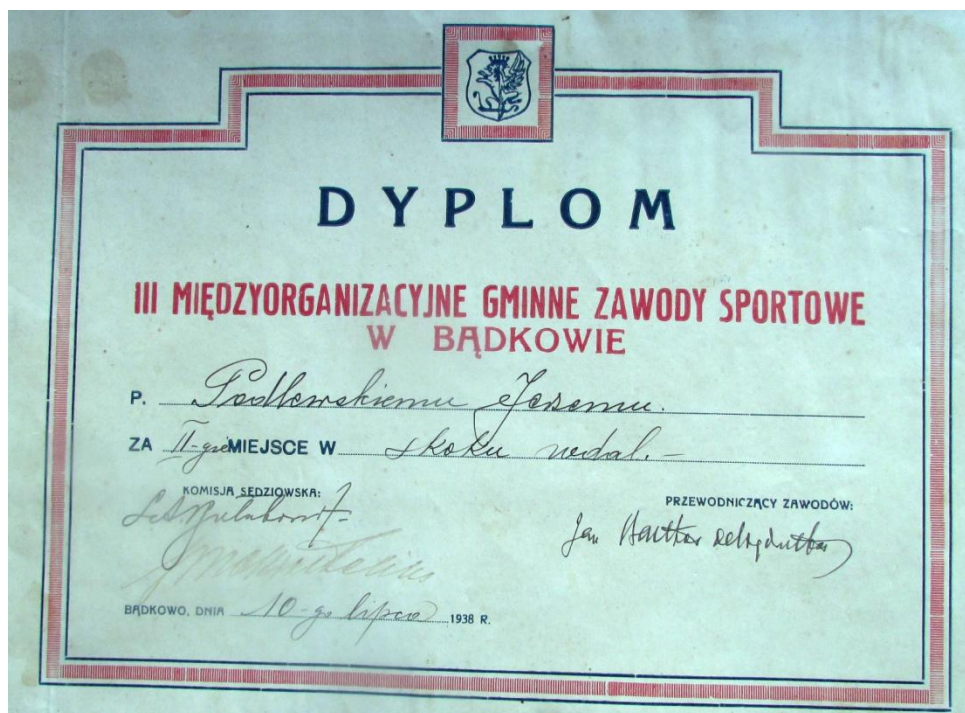 DYPLOM
III MIĘDZYORGANIZACYJNE GMINNE ZAWODY SPORTOWE
W BĄDKOWIE
P. Podlewskiemu Jerzemu.
ZA II-gie MIEJSCE W skoku wdal.-
KOMISJA SĘDZIOWSKA:
PRZEWODNICZĄCY ZAWODÓW:
Jan
BĄDKOWO, DNIA 10-go lipca 1938 R.